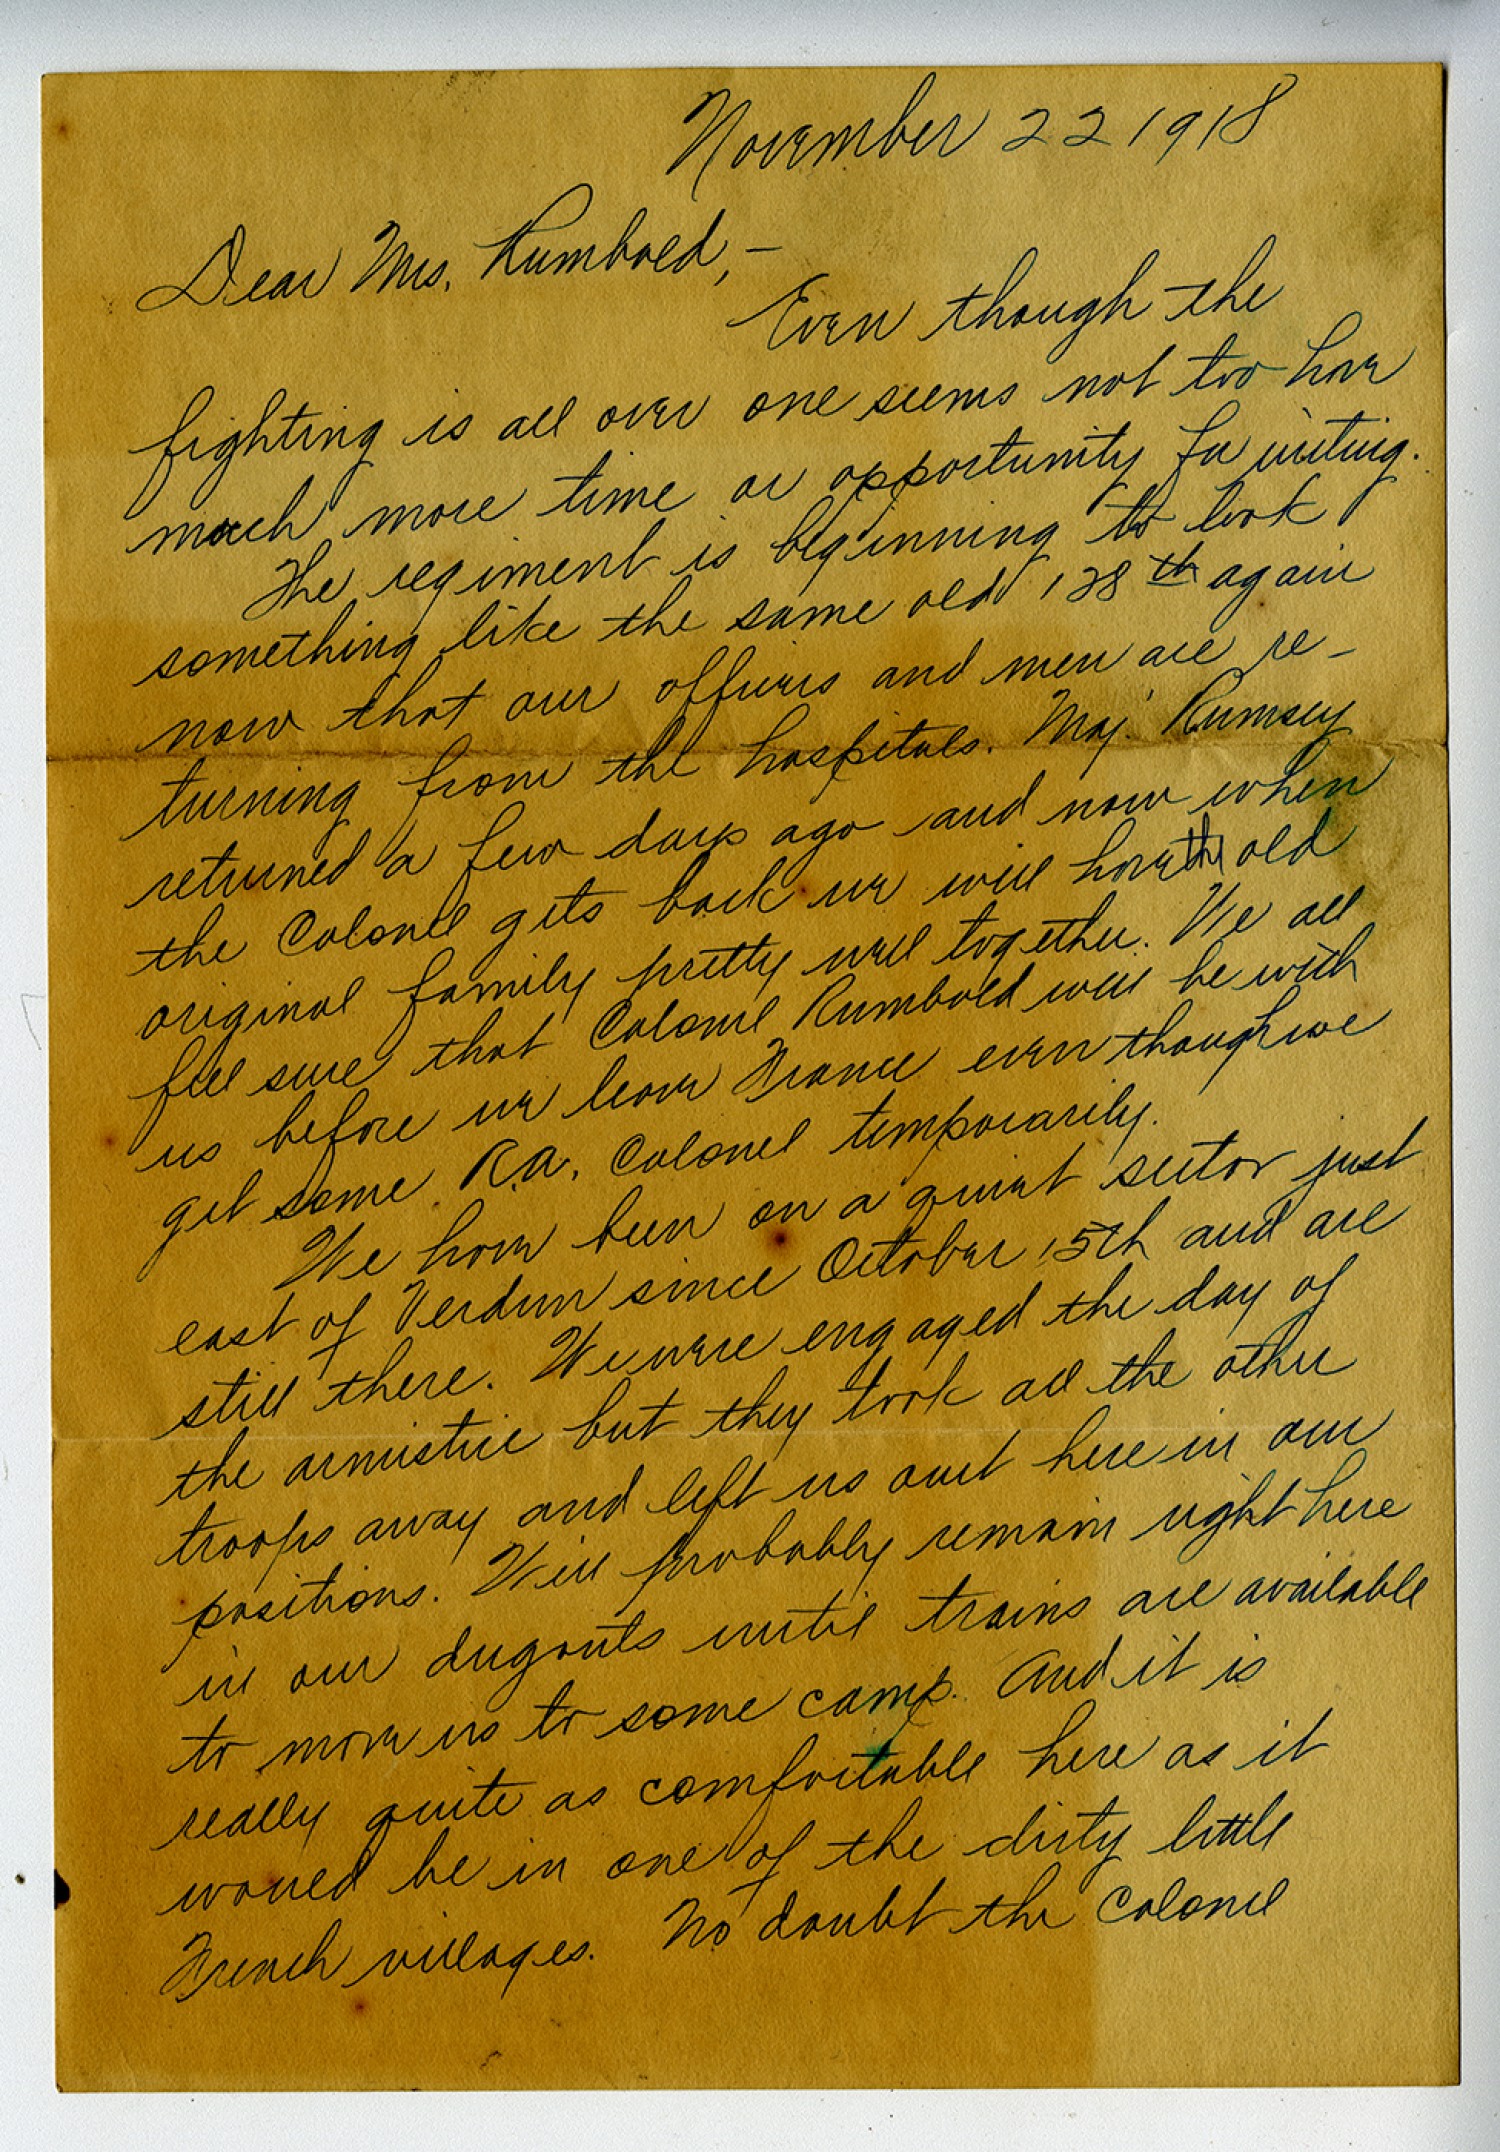 November 22 1918
Dear Mrs. Rumbold,—
Even though the
fighting is all over one seems not too have
much more time or opportunity for writing.
The regiment is beginning to look
something like the same old 138th again
now that our officers and men are re-
turning from the hospitals. Maj. Rumsey
returned a few days ago and now when
the Colonel gets back we will have the old
original family pretty well together. We all
feel sure that Colonel Rumbold will be with
us before we leave France even though we
get some R.A. Colonel temporarily.
We have been on a quiet sector just
east of Verdun since October 15th and are
still there. We were engaged the day of
the armistice but they took all the other
troops away and left us out here in our
positions. Will probably remain right here
in our dugouts until trains are available
to move us to some camp. And it is
really quite as comfortable here as it
would be in one of the dirty little
French villages. No doubt the Colonel